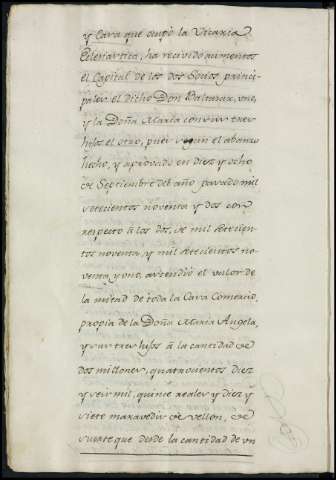 y Casa que ocupó la Vicaria
Eclesiastica, ha recivido aumentos
el Capital de los dos Socios princi-
pales el dicho Don Baltasar, uno,
y la Doña Maria con sus tres
hijos el otro, pues segun el abanze
hecho, y aprovado en diez y ocho
de Septiembre del año pasado mil
setecientos noventa y dos con
respecto á los dos, de mil setecien-
tos noventa, y mil setecientos no-
venta, y uno, ascendió el valor de
la mitad de toda la Casa Comercio,
propia de la Doña Maria Angela,
y sus tres hijos á la cantidad de
dos millones, quatrocientos diez
y seis mil, quince reales y diez y
siete maravedis de vellon, de
suerte que desde la cantidad de un